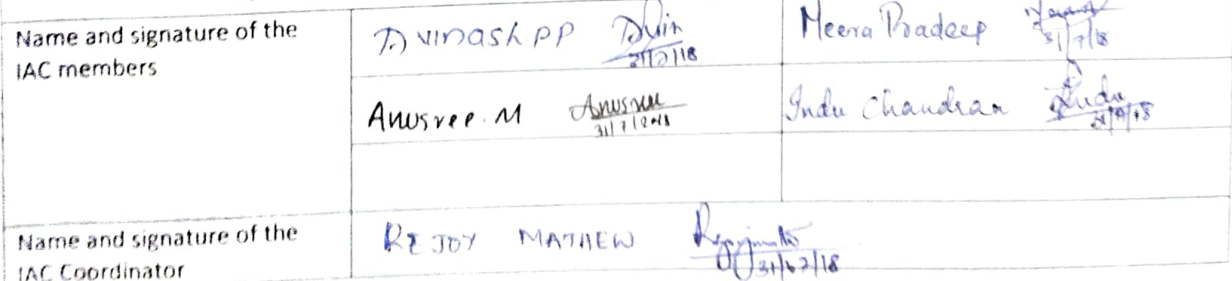 Name and signature of the
IAC members
Avinash PP Avin
31/7/18
Meera Pradeep
31/7/18
Anusree. M Anusree
31/7/2018
Indu Chandran Indu
31/7/18
Name and signature of the
IAC Coordinator
REJOY MATHEW
31/07/18